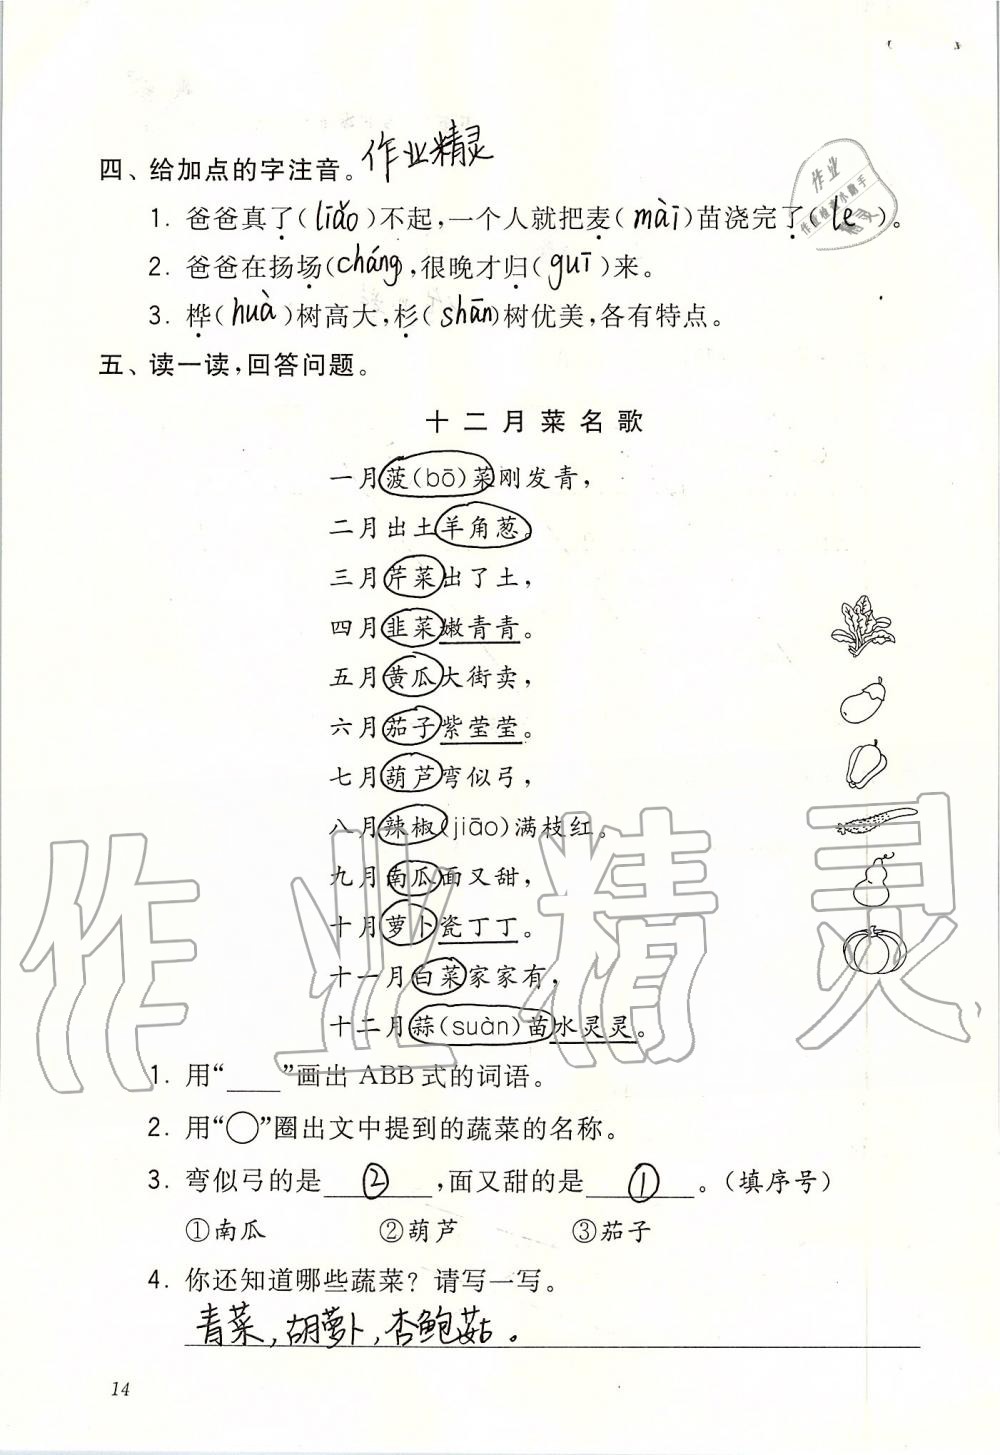 四、给加点的字注音。作业精灵
1. 爸爸真了(liǎo)不起，一个人就把麦(mài)苗浇完了(le)。
2. 爸爸在扬场(cháng)，很晚才归(guī)来。
3. 桦(huà)树高大，杉(shān)树优美，各有特点。
五、读一读，回答问题。
十二月菜名歌
一月菠(bō)菜刚发青，
二月出土羊角葱。
三月芹菜出了土，
四月韭菜嫩青青。
五月黄瓜大街卖，
六月茄子紫莹莹。
七月葫芦弯似弓，
八月辣椒(jiāo)满枝红。
九月南瓜面又甜，
十月萝卜瓷丁丁。
十一月白菜家家有，
十二月蒜(suàn)苗水灵灵。
1. 用“____”画出 ABB 式的词语。
2. 用“○”圈出文中提到的蔬菜的名称。
3. 弯似弓的是 ② ，面又甜的是 ① 。（填序号）
①南瓜 ②葫芦 ③茄子
4. 你还知道哪些蔬菜？请写一写。
青菜，胡萝卜，杏鲍菇。
14
作业精灵